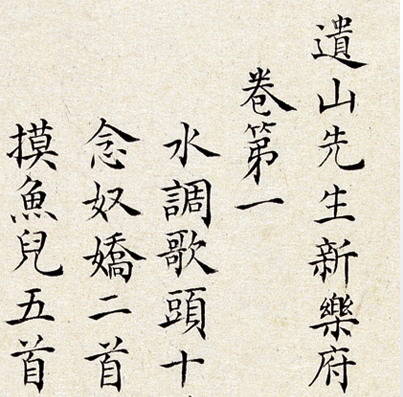 遺山先生新樂府
卷第一
水調歌頭十
念奴嬌二首
摸魚兒五首